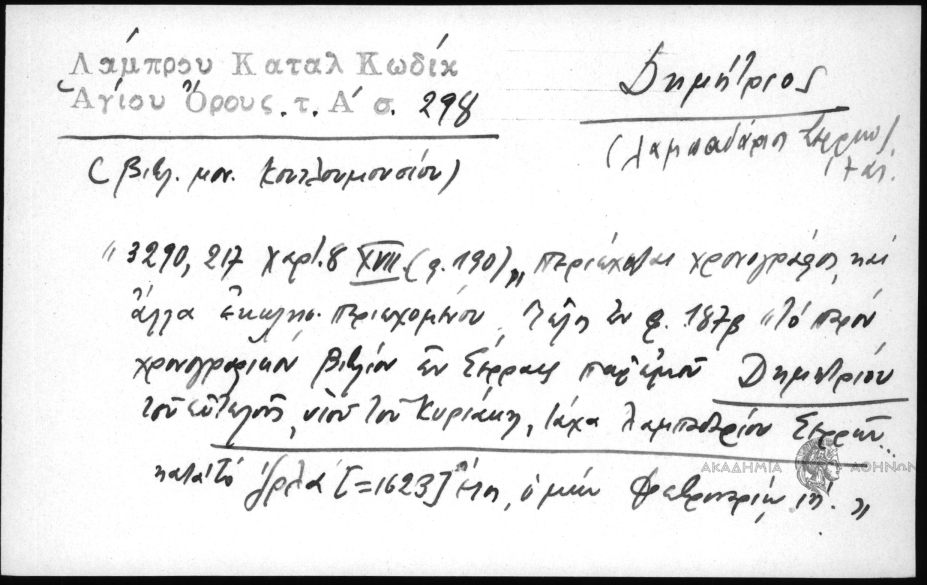 Λάμπρου Καταλ Κωδίκ
Ἁγίου Ὄρους. τ. Α΄ σ. 298
Δημήτριος
(Λαμπαδάριος Σερρῶν)
17 αἰ.
(Βιβλ. μον. Κουτλουμουσίου)
" 3290, 217 χαρτ. 8 XVII (φ. 190) „ περιέχεται χρονογράφος καὶ
ἄλλα ἐκκλησ. περιεχομένου. Τέλη ἐν φ. 187β "τὸ παρὸν
χρονογραφικὸν βιβλίον ἐν Σέρραις παρ' ἐμοῦ Δημητρίου
τοῦ εὐτελοῦς, υἱοῦ τοῦ Κυριάκη, τάχα λαμπαδαρίου Σερρῶν
κατὰ τὸ ͵ζρλα [=1623] ἔτη, ὁ μὴν Φεβρουαρίῳ ιη. „
ΑΚΑΔΗΜΙΑ ΑΘΗΝΩΝ